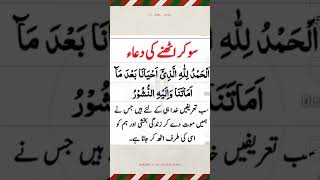 سو کر اٹھنے کی دعاء
اَلْحَمْدُ لِلّٰهِ الَّذِیْٓ اَحْیَانَا بَعْدَ مَآ
اَمَاتَنَا وَاِلَیْهِ النُّشُوْرُ
سب تعریفیں خدا ہی کے لئے ہیں جس نے
ہمیں موت دے کر زندگی بخشی اور ہم کو
اسی کی طرف اٹھ کر جانا ہے۔